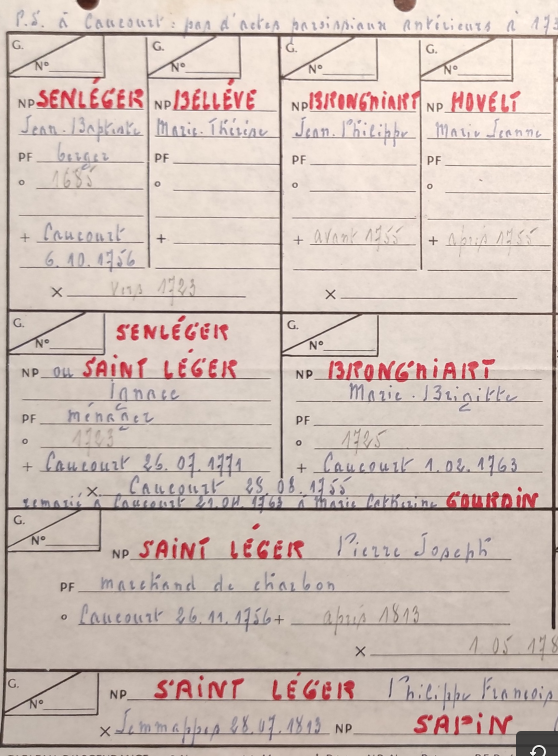 P.S. à Caucourt : pas d'actes paroissiaux antérieurs à 173
G. G. G. G.
N° N° N° N°
NP SENLÉGER NP BELLÈVE NP BRONGNIART NP HOVELT
Jean-Baptiste Marie-Thérèse Jean-Philippe Marie Jeanne
PF berger PF PF PF
° 1685 ° ° °
+ Caucourt + + avant 1755 + après 1755
6.10.1756
× vers 1723 ×
G. SENLÉGER G.
N° N°
NP ou SAINT LÉGER NP BRONGNIART
Ignace Marie-Brigitte
PF ménager PF
° 1723 ° 1725
+ Caucourt 26.07.1771 + Caucourt 1.02.1763
× Caucourt 28.08.1755
remarié à Caucourt 21.04.1763 à Marie Catherine GOURDIN
G.
N°
NP SAINT LÉGER Pierre Joseph
PF marchand de charbon
° Caucourt 26.11.1756 + après 1813
× 1.05.178
G.
N°
NP SAINT LÉGER Philippe François
× Jemmappes 28.07.1813 NP SAPIN